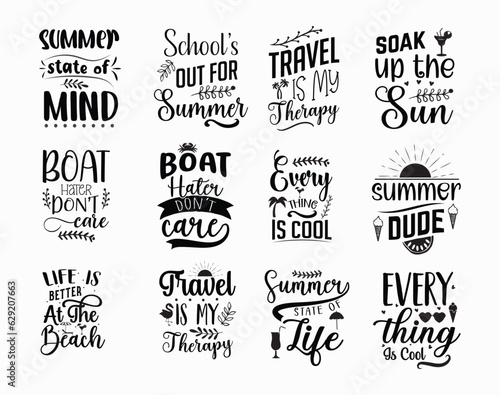 SUMMER
state of
MIND
School's
OUT FOR
Summer
TRAVEL
IS MY
Therapy
SOAK
up the
Sun
BOAT
Hater
DON'T
care
BOAT
Hater
DON'T
care
Every
THING
IS COOL
summer
DUDE
LIFE IS
BETTER
At The
Beach
Travel
IS MY
Therapy
Summer
STATE OF
Life
EVERY
thing
Is Cool
Adobe Stock | #629207663